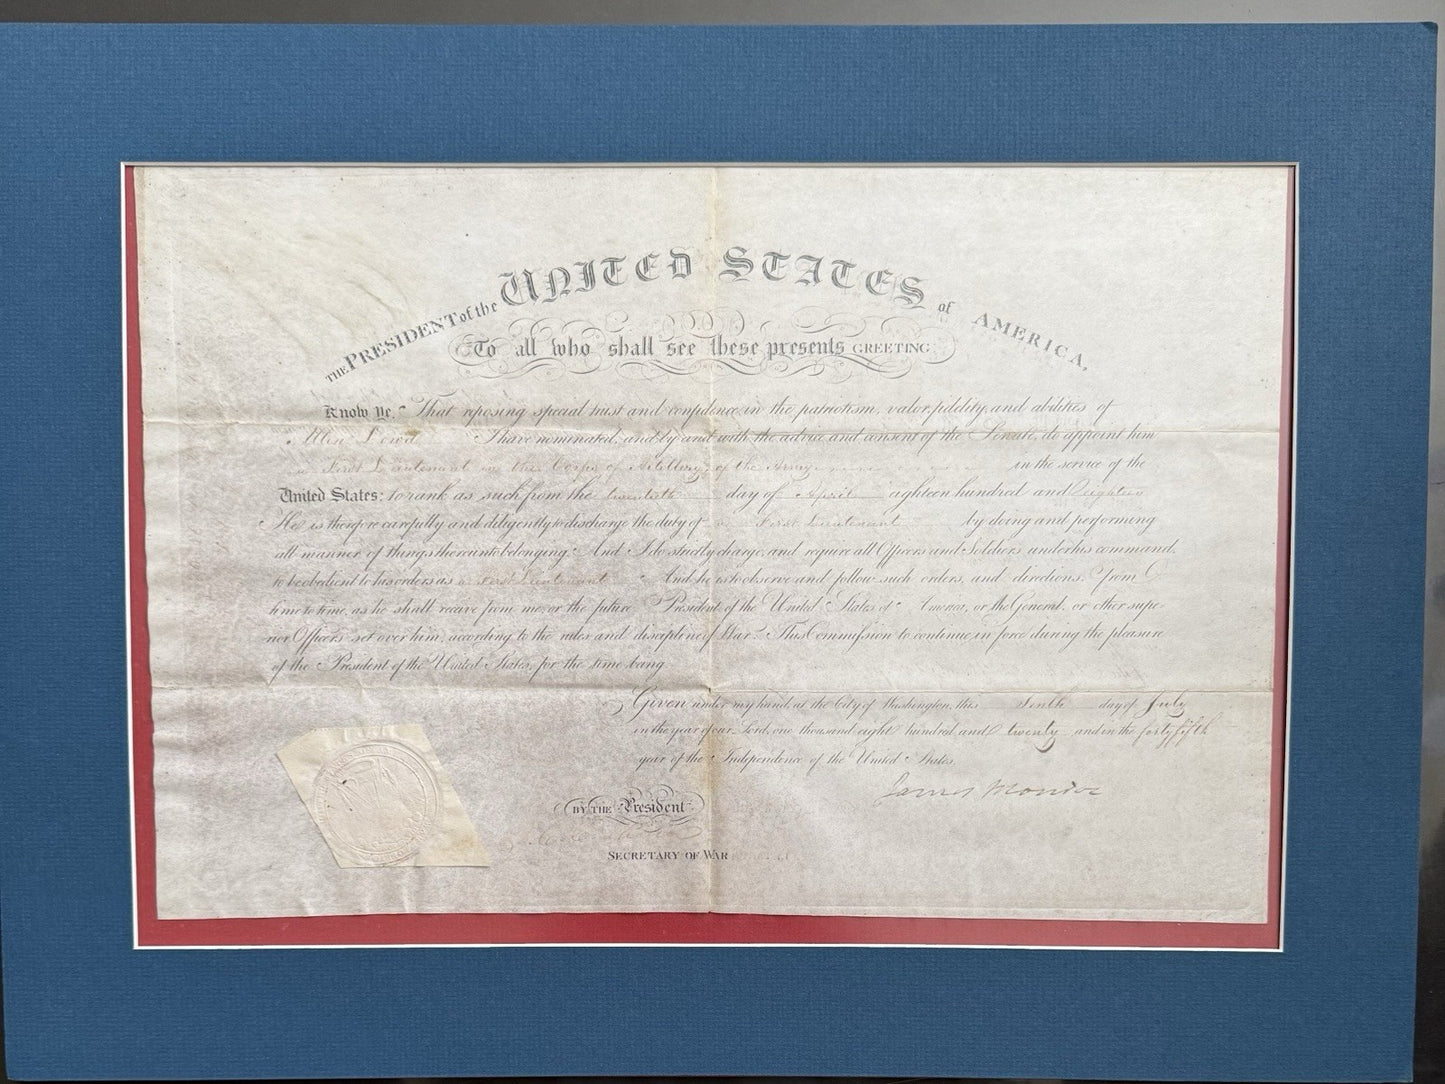 THE PRESIDENT of the UNITED STATES of AMERICA,
To all who shall see these presents GREETING:
Know Ye, That reposing special trust and confidence in the patriotism, valor, fidelity, and abilities of
I have nominated, and by and with the advice and consent of the Senate, do appoint him
First Lieutenant in the Corps of Artillery of the Army in the service of the
United States: to rank as such from the twentieth day of April eighteen hundred and eighteen
He is therefore carefully and diligently to discharge the duty of a First Lieutenant by doing and performing
all manner of things thereunto belonging. And I do strictly charge, and require all Officers and Soldiers under his command,
to be obedient to his orders as a First Lieutenant And he is to observe and follow such orders, and directions, from
time to time, as he shall receive from me, or the future President of the United States of America, or the General, or other supe-
rior Officers set over him, according to the rules and discipline of War. This Commission to continue in force during the pleasure
of the President of the United States, for the time being.
Given under my hand, at the City of Washington, this Tenth day of July
in the year of our Lord, one thousand eight hundred and twenty and in the forty fifth
year of the Independence of the United States.
James Monroe
BY THE President
SECRETARY OF WAR